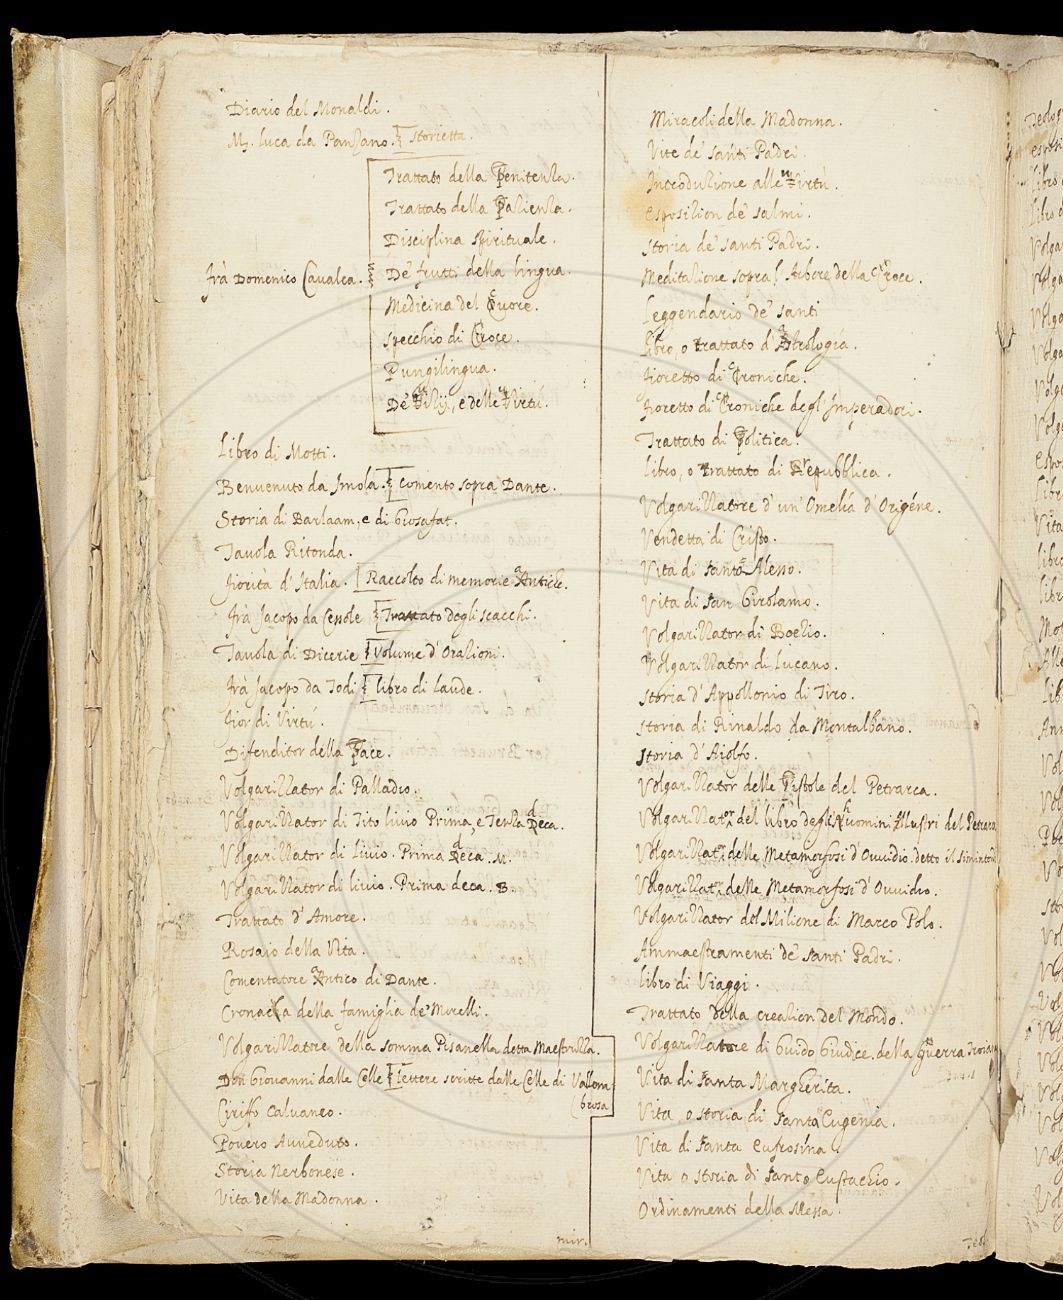 Diario del Monaldi.
M. luca da Panzano. Storietta.
Trattato della Penitenza.
Trattato della Pazienza.
Disciplina spirituale.
frà Domenico Cavalca. De' frutti della lingua.
Medicina del Cuore.
specchio di Croce.
Pungilingua.
De' Vizij, e delle Virtù.
Libro di Motti.
Benvenuto da Imola. Comento sopra Dante.
Storia di Barlaam, e di Giosafat.
Tavola Ritonda.
fiorità d'Italia. Raccolto di memorie Antiche.
frà Jacopo da Cessole Trattato degli scacchi.
Tavola di Dicerie volume d'Orazioni.
frà Jacopo da Todi libro di laude.
fior di Virtù.
Difenditor della Pace.
Volgarizzator di Palladio.
Volgarizzator di Tito livio Prima, e Terza Deca.
Volgarizzator di livio. Prima Deca. M.
Volgarizzator di livio. Prima deca. B.
Trattato d'Amore.
Rosaio della Vita.
Comentatore Antico di Dante.
Cronaca della famiglia de'
Volgarizzatore della somma Pisanella detta Maestruzza.
Don Giovanni dalle Celle lettere scritte dalle Celle di Vallom
brosa
Ciriffo Calvaneo.
Povero Avveduto.
Storia Nerbonese.
Vita della Madonna.
mir.
Miracoli della Madonna.
Vite de' santi Padri.
Introduzione alle Virtù.
Esposizion de' salmi.
storia de' santi Padri.
Meditazione sopra l'Arbore della Croce.
Leggendario de' santi
libro, o trattato d'Astrologia.
fioretto di Croniche.
fioretto di Croniche degl'Imperadori.
Trattato di Politica.
libro, o trattato di Repubblica.
Volgarizzatore d'un'Omelia d'Origéne.
Vendetta di Cristo.
Vita di santo Alesso.
Vita di san Girolamo.
Volgarizzator di Boezio.
Volgarizzator di Lucano.
Storia d'Appollonio di Tiro.
Storia di Rinaldo da Montalbano.
Storia d'Aiolfo.
Volgarizzator delle Pistole del Petrarca.
Volgarizzator del libro degli huomini Illustri del Petrarca
Volgarizzator delle Metamorfosi d'Ovvidio detto il
Volgarizzator delle Metamorfosi d'Ovvidio.
Volgarizzator del Milione di Marco Polo.
Ammaestramenti de' santi Padri.
libro di Viaggi.
Trattato della creazion del Mondo.
Volgarizzatore di Guido Giudice della Guerra Troiana
Vita di santa Margherita.
Vita, o storia, di santa Eugenia.
Vita di santa Eufrosina.
Vita o storia di santo Eustachio.
Ordinamenti della Messa.